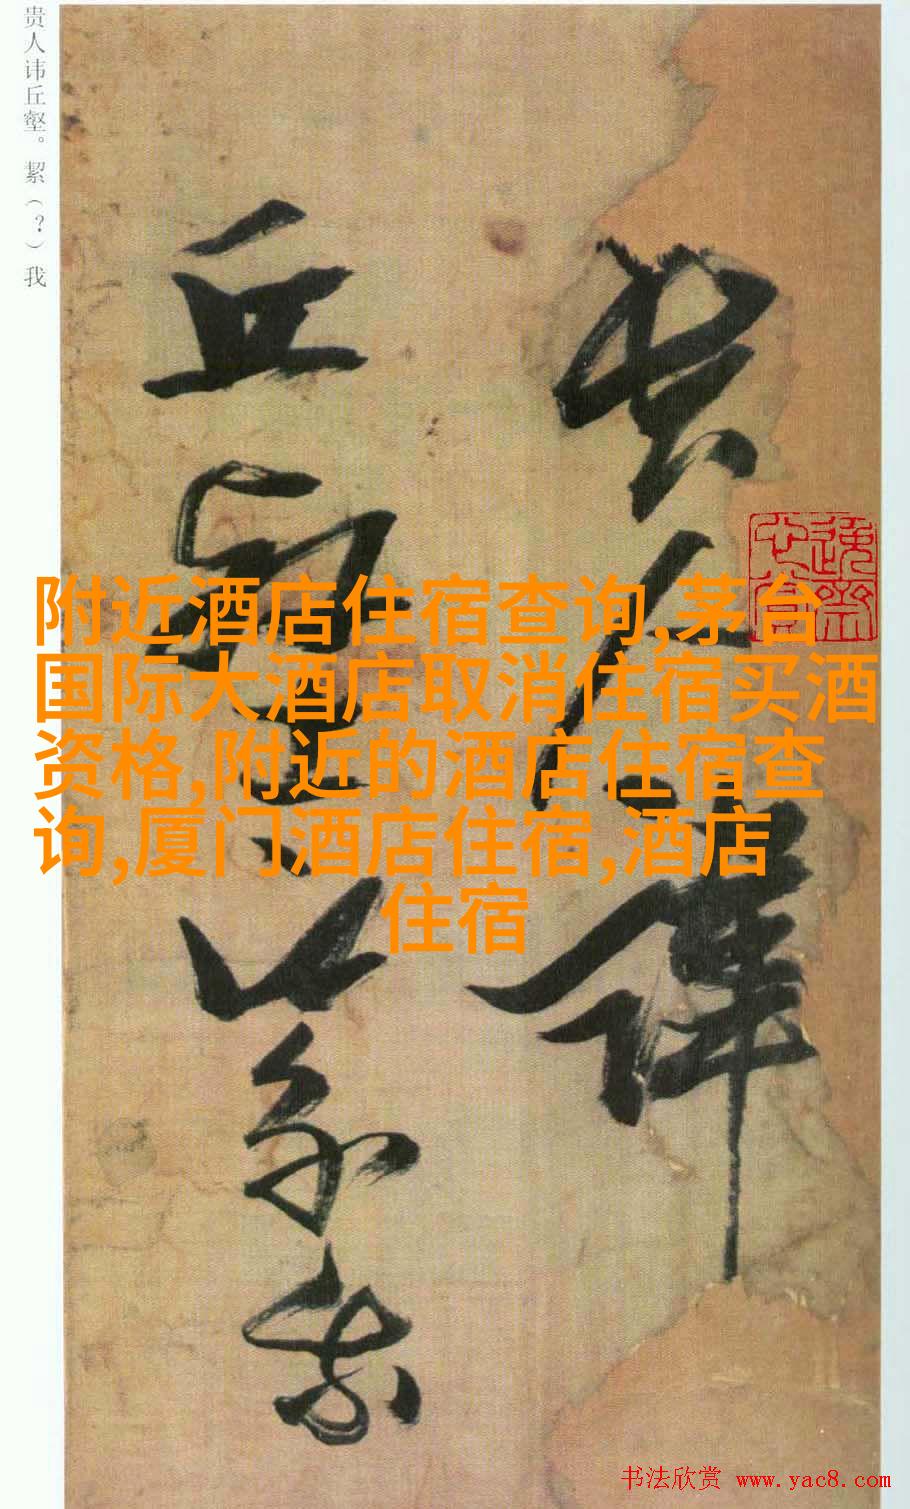 贵人讳丘壑。絜（？）我
贵人讳
丘壑絜我
附近酒店住宿查询,茅台
国际大酒店取消住宿买酒
资格,附近的酒店住宿查
询,厦门酒店住宿,酒店
住宿
书法欣赏 www.yac8.com